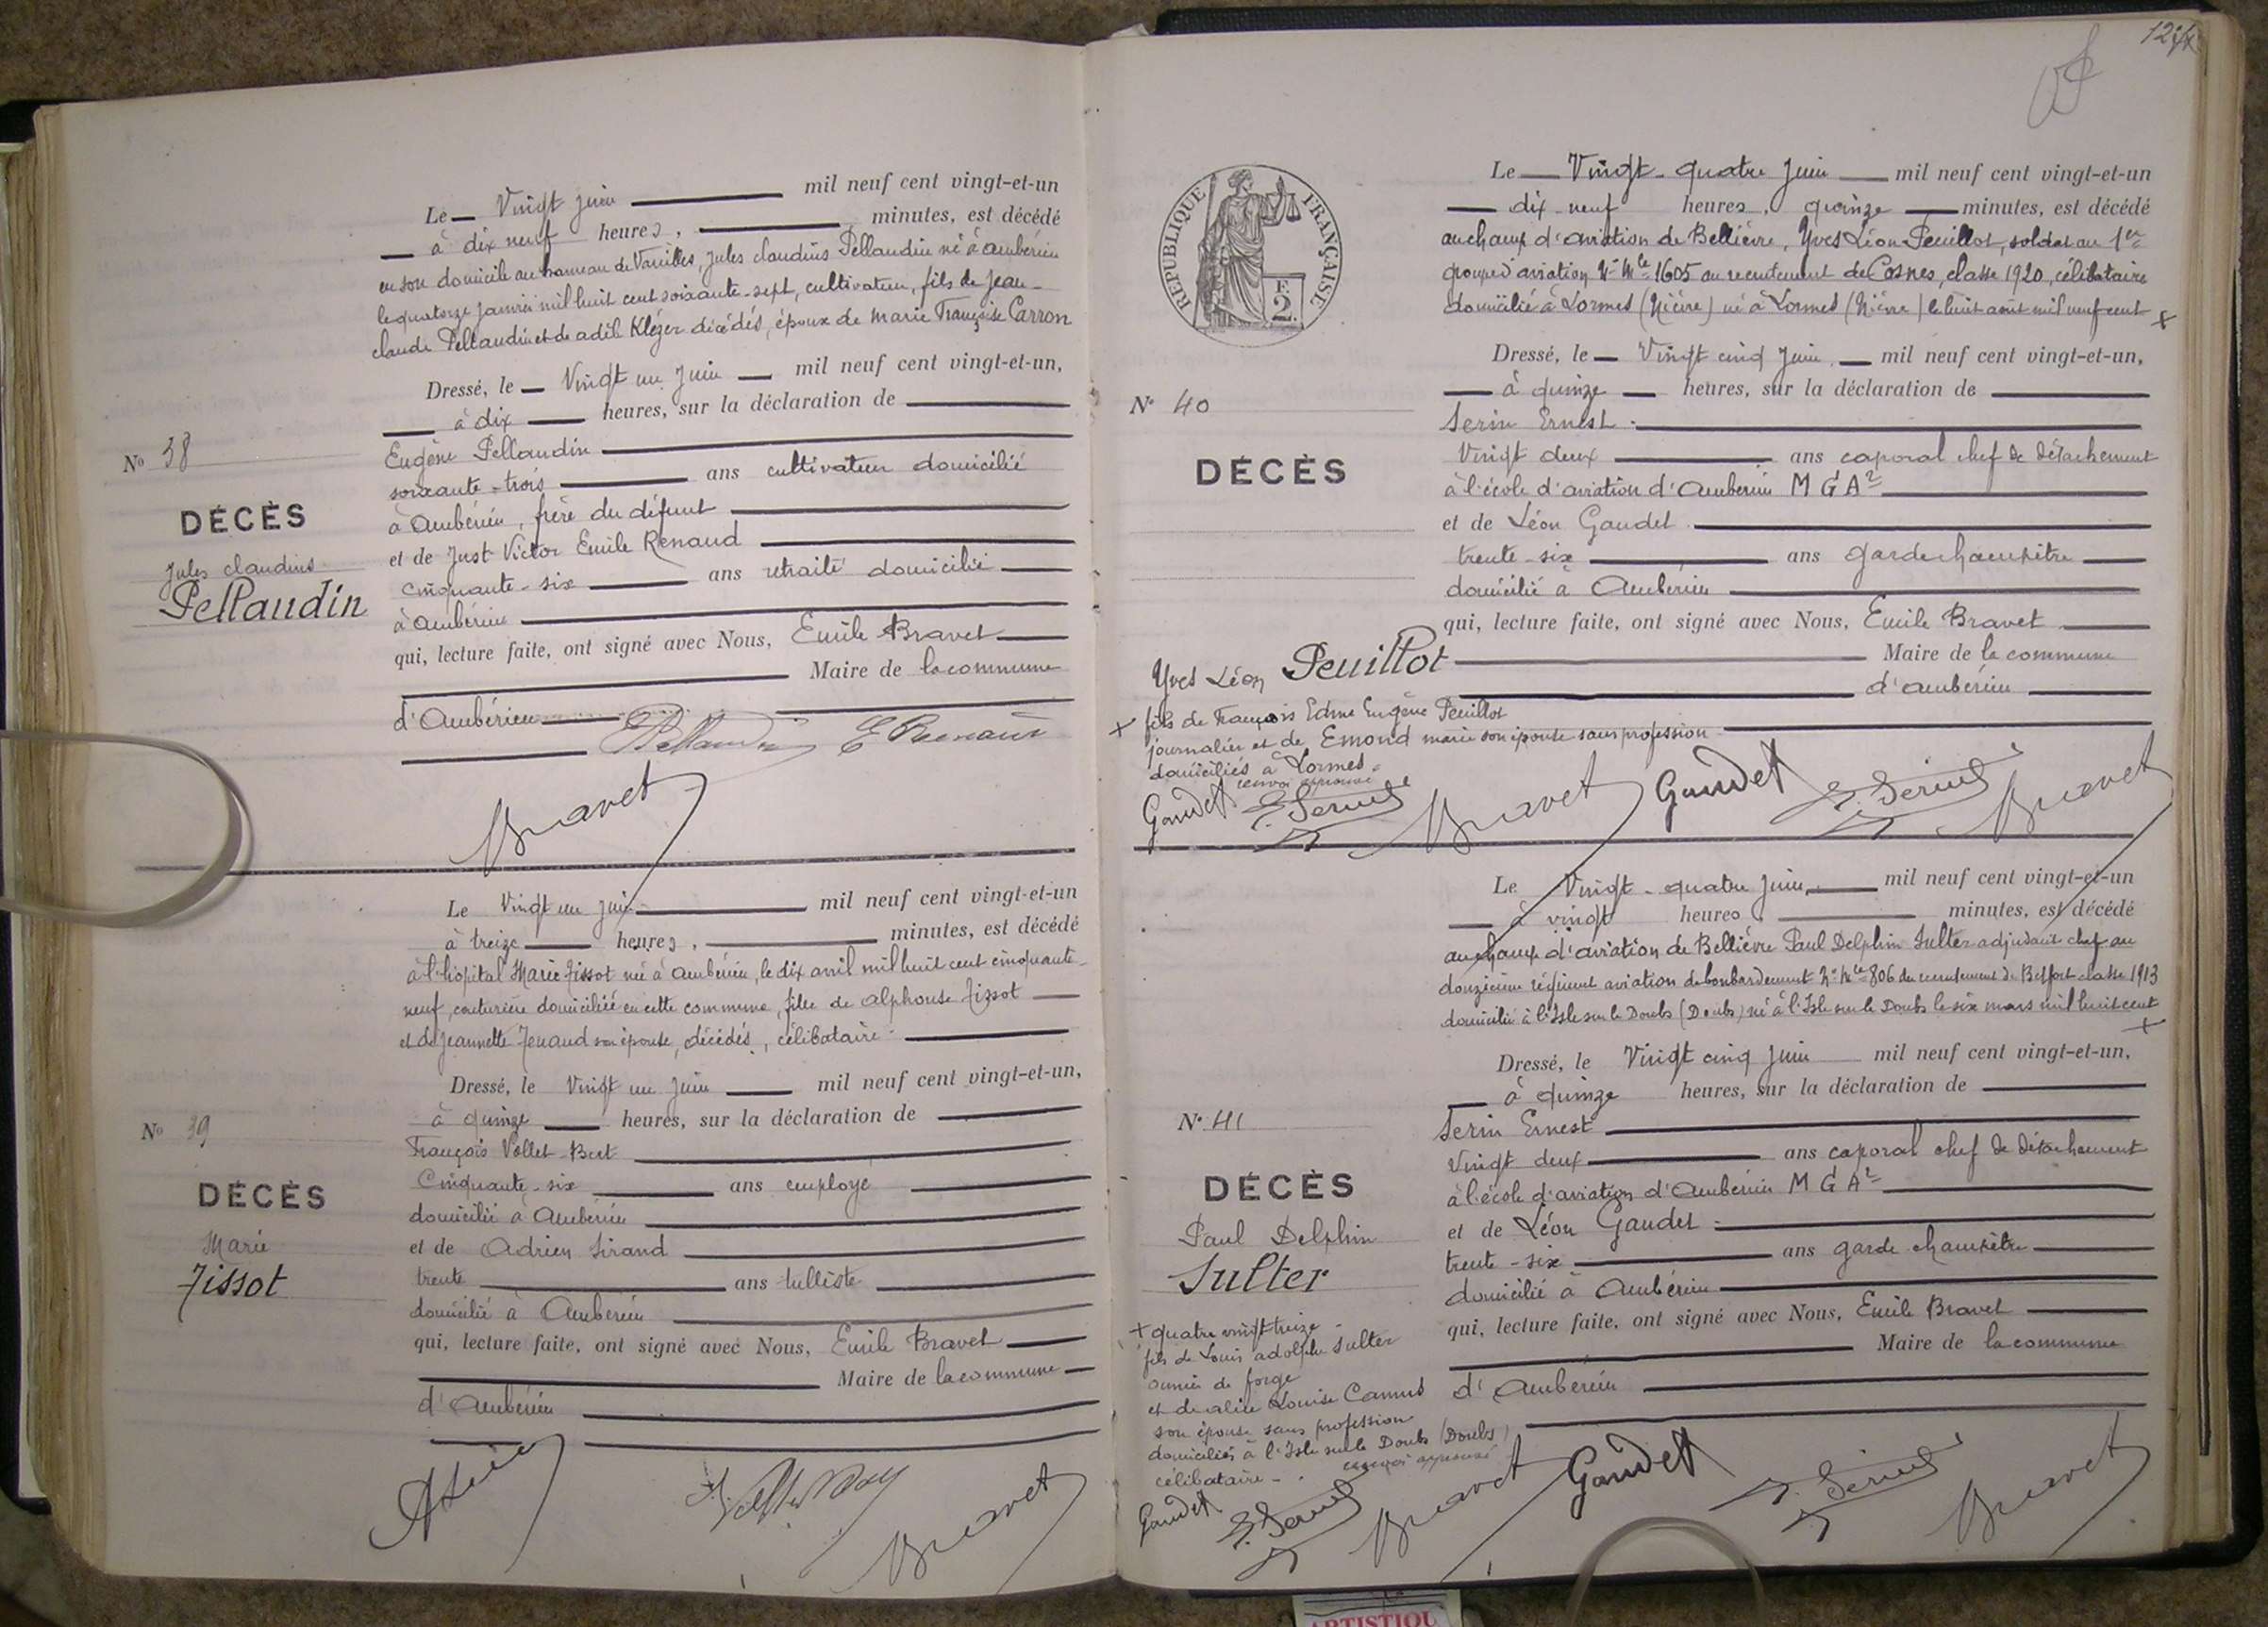 Le Vingt juin mil neuf cent vingt-et-un
à dix neuf heures, minutes, est décédé
en son domicile au hameau de Vareilles, Jules Claudius Pellaudin né à Ambérieu
le quatorze janvier mil huit cent soixante-sept, cultivateur, fils de Jean-
claude Pellaudin et de adèle Kléger décédés, époux de Marie Françoise Carron
Dressé, le Vingt un Juin mil neuf cent vingt-et-un,
à dix heures, sur la déclaration de
Eugène Pellaudin
soixante-trois ans cultivateur domicilié
à Ambérieu, frère du défunt
et de Just Victor Emile Renaud
cinquante-six ans retraité domicilié
à Ambérieu
qui, lecture faite, ont signé avec Nous, Emile Bravet
Maire de la commune
d'Ambérieu
No 38
DÉCÈS
Jules claudius
Pellaudin
Pellaudin E Renaud
Bravet
Le Vingt un juin mil neuf cent vingt-et-un
à treize heures, minutes, est décédé
à l'hôpital Marie Tissot né à Ambérieu, le dix avril mil huit cent cinquante-
neuf, couturière domiciliée en cette commune, fille de Alphonse Tissot
et de Jeannette Tenaud son épouse, décédés, célibataire.
Dressé, le Vingt un juin mil neuf cent vingt-et-un,
à quinze heures, sur la déclaration de
François Vollet-Bert
Cinquante-six ans employé
domicilié à Ambérieu
et de Adrien Sirand
trente ans tulliste
domicilié à Ambérieu
qui, lecture faite, ont signé avec Nous, Emile Bravet
Maire de la commune
d'Ambérieu
No 39
DÉCÈS
Marie
Tissot
Bravet
REPUBLIQUE FRANÇAISE
F.
2.
Le Vingt-quatre Juin mil neuf cent vingt-et-un
dix-neuf heures, quinze minutes, est décédé
au champ d'aviation de Bellièvre, Yves Léon Peuillot, soldat au 1er
groupe d'aviation, N° Mle 1605 au recrutement de Cosnes, classe 1920, célibataire
domicilié à Lormes (Nièvre) né à Lormes (Nièvre) le huit août mil neuf cent +
Dressé, le Vingt cinq Juin mil neuf cent vingt-et-un,
à quinze heures, sur la déclaration de
Serin Ernest
Vingt deux ans caporal chef de détachement
à l'école d'aviation d'Ambérieu M G A 2
et de Léon Gaudet
trente-six ans garde champêtre
domicilié à Ambérieu
qui, lecture faite, ont signé avec Nous, Emile Bravet
Maire de la commune
d'Ambérieu
N° 40
DÉCÈS
Yves Léon Peuillot
+ fils de François Edme Eugène Peuillot
journalier et de Emond marie son épouse sans profession
domiciliés à Lormes.
renvoi approuvé
Gaudet E. Serin Bravet Gaudet E. Serin Bravet
Le Vingt-quatre Juin mil neuf cent vingt-et-un
à vingt heures, minutes, est décédé
au champ d'aviation de Bellièvre Paul Delphin Sulter adjudant chef au
douzième régiment aviation de bombardement N° Mle 806 du recrutement de Belfort classe 1913
domicilié à l'Isle sur le Doubs (Doubs) né à l'Isle sur le Doubs le six mars mil huit cent
+
Dressé, le Vingt cinq Juin mil neuf cent vingt-et-un,
à quinze heures, sur la déclaration de
Serin Ernest
Vingt deux ans caporal chef de détachement
à l'école d'aviation d'Ambérieu M G A 2
et de Léon Gaudet
trente-six ans garde champêtre
domicilié à Ambérieu
qui, lecture faite, ont signé avec Nous, Emile Bravet
Maire de la commune
d'Ambérieu
N° 41
DÉCÈS
Paul Delphin
Sulter
+ quatre vingt-treize
fils de Louis adolphe Sulter
ouvrier de forge
et de alice Louise Camus
son épouse sans profession
domiciliés à l'Isle sur le Doubs (Doubs)
célibataire. renvoi approuvé
Gaudet E. Serin Bravet Gaudet E. Serin Bravet